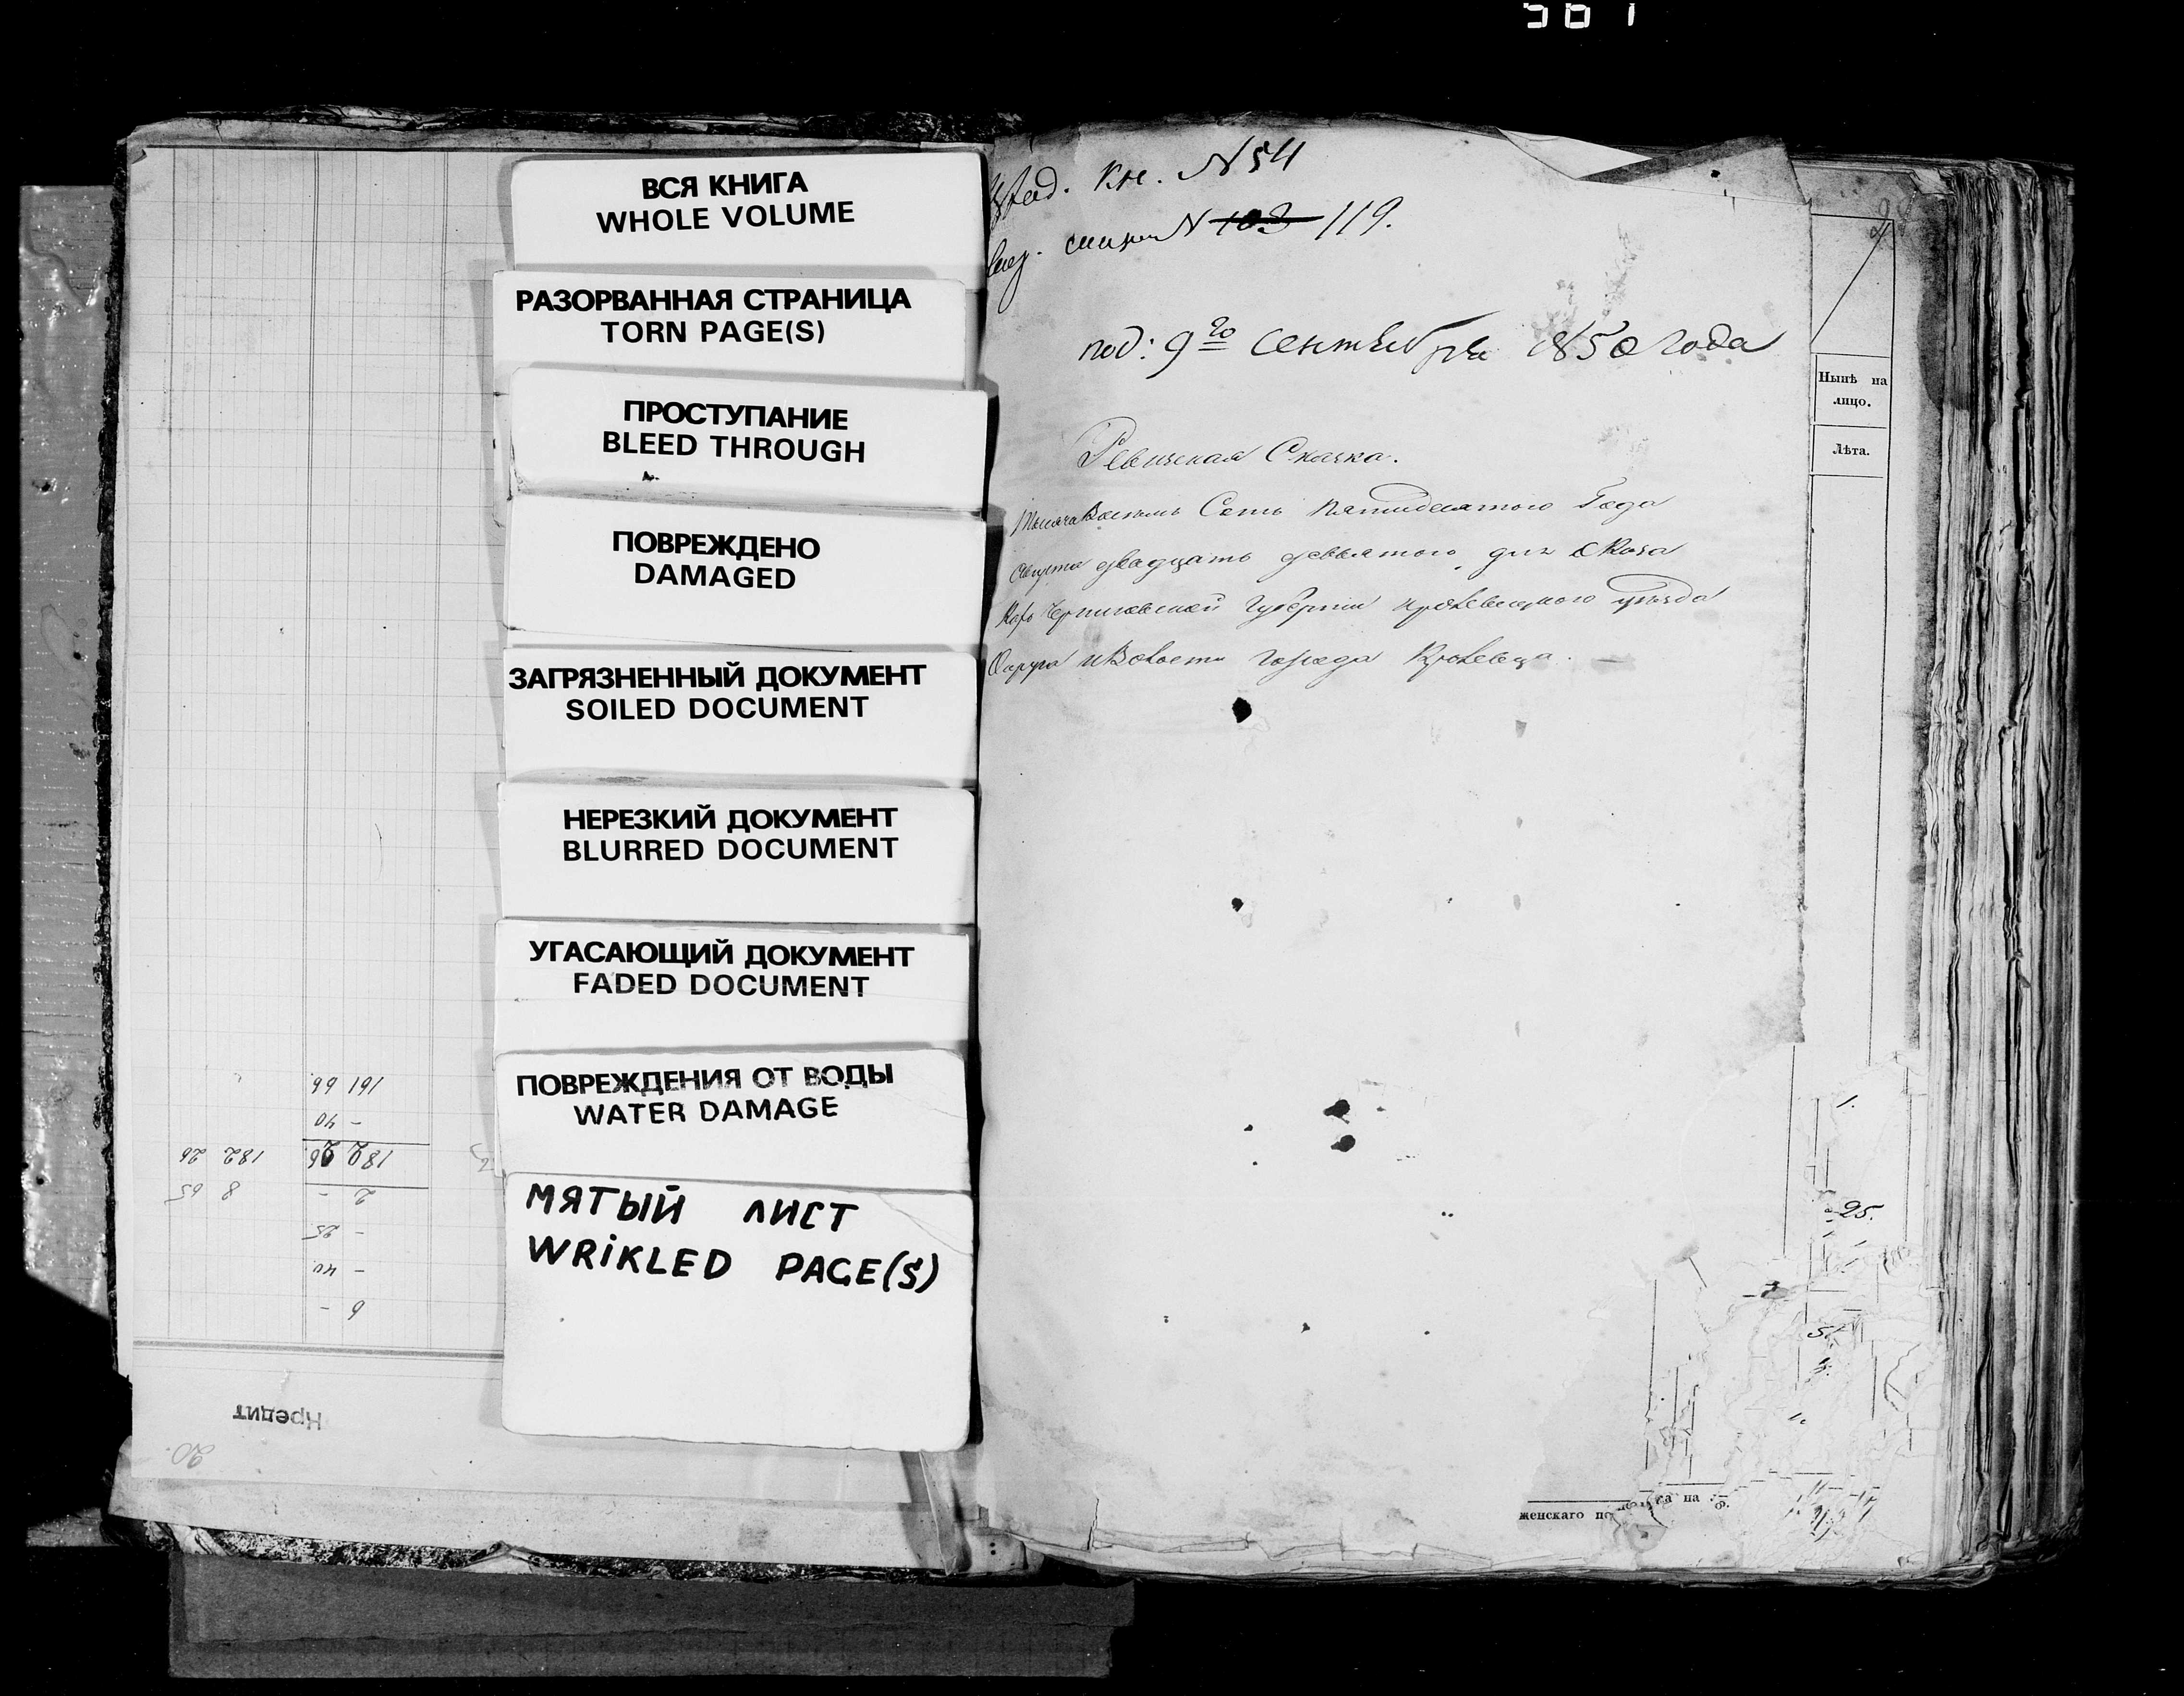 ВСЯ КНИГА
WHOLE VOLUME
РАЗОРВАННАЯ СТРАНИЦА
TORN PAGE(S)
ПРОСТУПАНИЕ
BLEED THROUGH
ПОВРЕЖДЕНО
DAMAGED
ЗАГРЯЗНЕННЫЙ ДОКУМЕНТ
SOILED DOCUMENT
НЕРЕЗКИЙ ДОКУМЕНТ
BLURRED DOCUMENT
УГАСАЮЩИЙ ДОКУМЕНТ
FADED DOCUMENT
ПОВРЕЖДЕНИЯ ОТ ВОДЫ
WATER DAMAGE
МЯТЫЙ ЛИСТ
WRIKLED PAGE(S)
6 -
- 40
- 25
2 - 8 65
182 26
- 40
161 66
Кредит
20.
кн. N 54
N 103 119.
под: 9го Сентября 1850 года
Ревизская Сказка.
Тысяча Восемь Сотъ пятидесятого Года
Августа двадцать девятого дня
Черниговской Губернии Кролевецкого уезда
Округа и Волости города Кролевца.
Нынѣ на
лицо.
Лѣта.
1.
25.
5.
на
женскаго